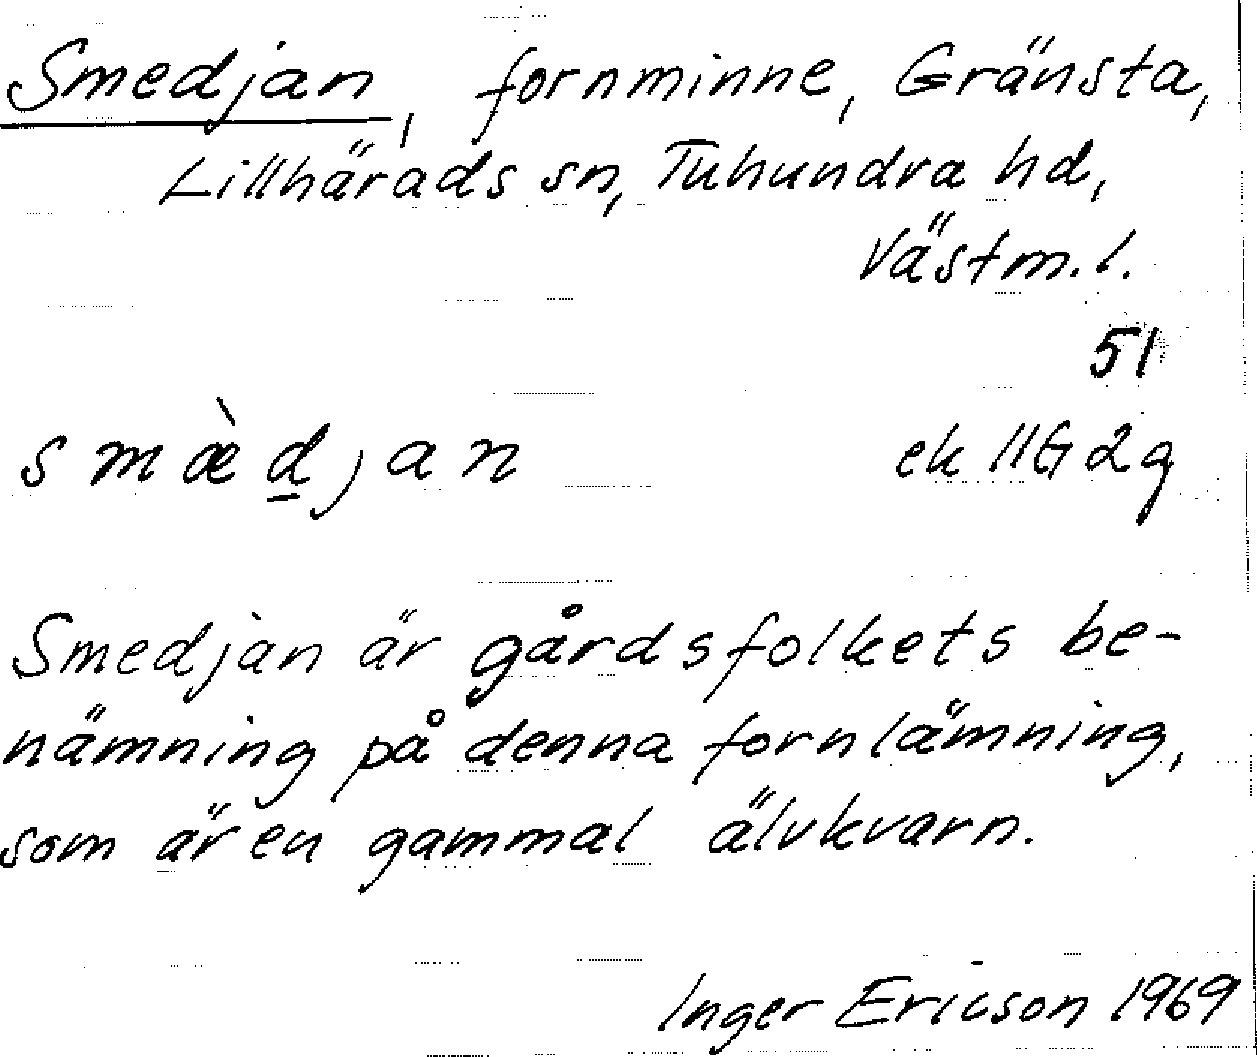 Smedjan, fornminne, Gränsta,
Lillhärads sn, Tuhundra hd,
Västm. l.
51
smæ̀d̲jan ek 11G2g
Smedjan är gårdsfolkets be-
nämning på denna fornlämning,
som är en gammal älvkvarn.
Inger Ericson 1969